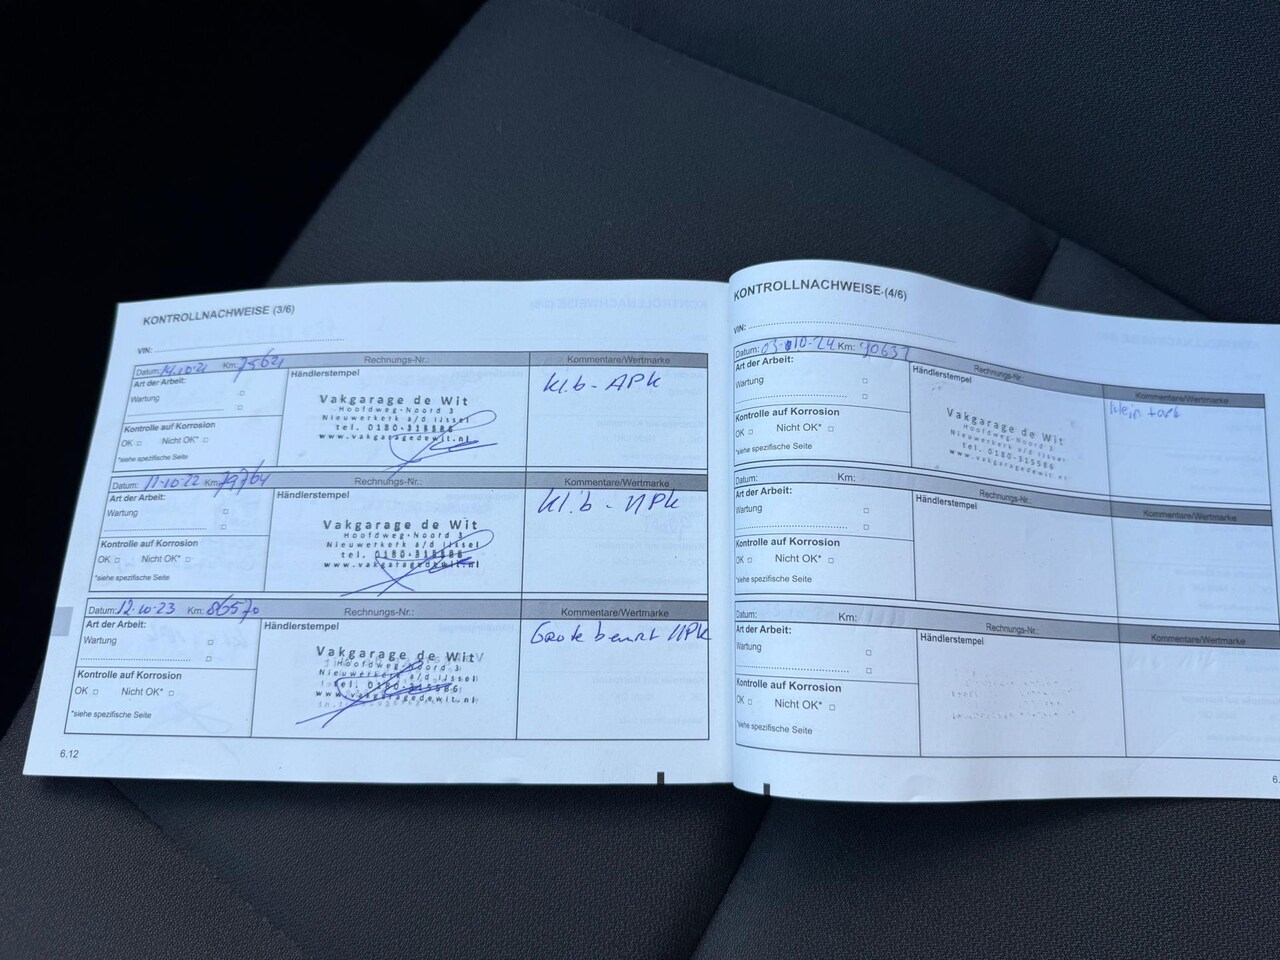 KONTROLLNACHWEISE (3/6)
VIN:
Datum: 14.10.21 Km: 75621 Rechnungs-Nr.: Kommentare/Wertmarke
Art der Arbeit: Händlerstempel kl.b - APK
Wartung
Vakgarage de Wit
Hoofdweg-Noord 3
Nieuwerkerk a/d IJssel
tel. 0180-315586
www.vakgaragedewit.nl
Kontrolle auf Korrosion
OK Nicht OK*
*siehe spezifische Seite
Datum: 11-10-22 Km: 79764 Rechnungs-Nr.: Kommentare/Wertmarke
Art der Arbeit: Händlerstempel kl.b - APK
Wartung
Vakgarage de Wit
Hoofdweg-Noord 3
Nieuwerkerk a/d IJssel
tel. 0180-315586
www.vakgaragedewit.nl
Kontrolle auf Korrosion
OK Nicht OK*
*siehe spezifische Seite
Datum: 12-10-23 Km: 86570 Rechnungs-Nr.: Kommentare/Wertmarke
Art der Arbeit: Händlerstempel Grote beurt APK
Wartung
Vakgarage de Wit
Hoofdweg-Noord 3
Nieuwerkerk a/d IJssel
tel. 0180-315586
www.vakgaragedewit.nl
Kontrolle auf Korrosion
OK Nicht OK*
*siehe spezifische Seite
6.12
KONTROLLNACHWEISE (4/6)
VIN:
Datum: 03-10-24 Km: 90637 Rechnungs-Nr.: Kommentare/Wertmarke
Art der Arbeit: Händlerstempel klein
Wartung
Vakgarage de Wit
Hoofdweg-Noord 3
Nieuwerkerk a/d IJssel
tel. 0180-315586
www.vakgaragedewit.nl
Kontrolle auf Korrosion
OK Nicht OK*
*siehe spezifische Seite
Datum: Km: Rechnungs-Nr.: Kommentare/Wertmarke
Art der Arbeit: Händlerstempel
Wartung
Kontrolle auf Korrosion
OK Nicht OK*
*siehe spezifische Seite
Datum: Km: Rechnungs-Nr.: Kommentare/Wertmarke
Art der Arbeit: Händlerstempel
Wartung
Kontrolle auf Korrosion
OK Nicht OK*
*siehe spezifische Seite
6.